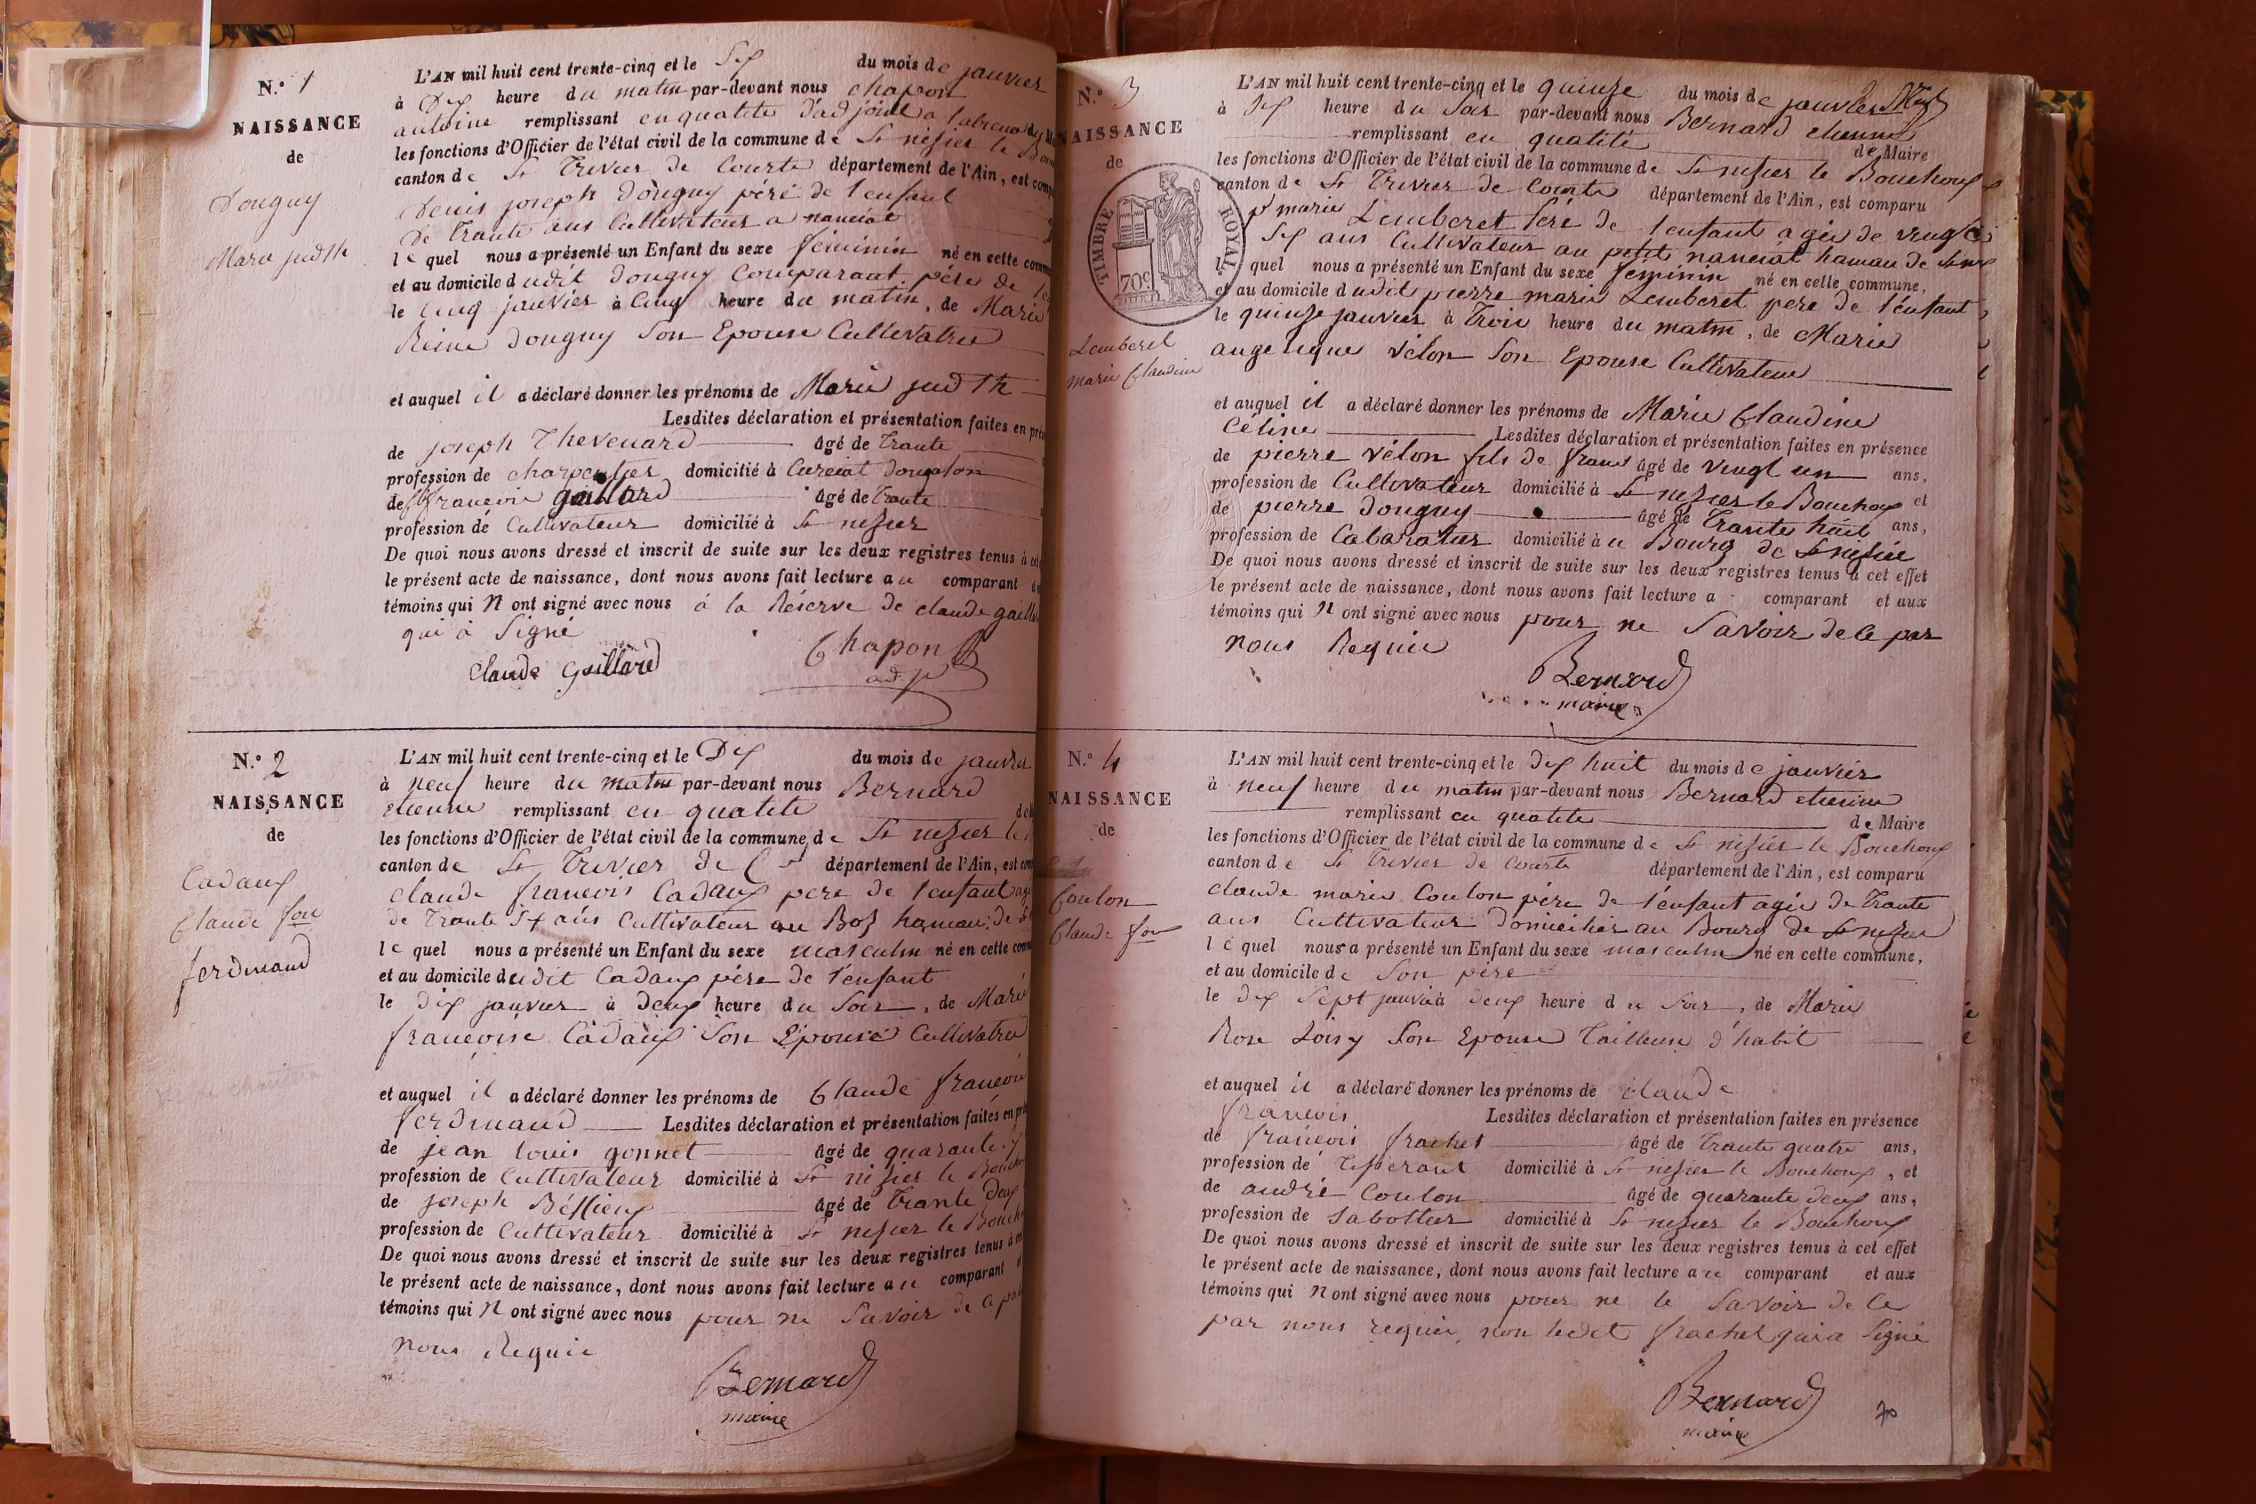 N.º 1
NAISSANCE
de
Dougny
Marie judth
L'AN mil huit cent trente-cinq et le Six du mois de janvier
à Dix heure du matin par-devant nous chapon
antoine remplissant en qualité d'adjoint
les fonctions d'Officier de l'état civil de la commune de St nizier le
canton de St Trivier de Courte département de l'Ain, est
Denis joseph Dougny pére de l'enfant
de Trante ans Cultivateur a nanciat
le quel nous a présenté un Enfant du sexe féminin né en cette
et au domicile dudit Dougny Comparant pére de
le Cinq janvier à Cinq heure du matin, de Marie
Reine Dougny Son Epouse Cultivatrie
et auquel il a déclaré donner les prénoms de Marie judth
Lesdites déclaration et présentation faites en
de joseph Thevenard âgé de Trante
profession de charpentier domicilié à Curciat Dongalon
de françois gaillard âgé de Trante
profession de Cultivateur domicilié à St nizier
De quoi nous avons dressé et inscrit de suite sur les deux registres tenus à
le présent acte de naissance, dont nous avons fait lecture au comparant
témoins qui n ont signé avec nous á la Réserve de claude
qui à Signé
Claude Gaillard
Chapon
adj
N.º 2
NAISSANCE
de
Cadaux
Claude fois
ferdinand
L'AN mil huit cent trente-cinq et le Dix du mois de janvier
à neuf heure du matin par-devant nous Bernard
etienne remplissant en qualité
les fonctions d'Officier de l'état civil de la commune de St nizier le
canton de St Trivier de Ct département de l'Ain, est
claude françois Cadaux pere de l'enfant
de Trante Six ans Cultivateur au Boz hameau de
le quel nous a présenté un Enfant du sexe masculin né en cette
et au domicile dudit Cadaux pére de l'enfant
le dix janvier à deux heure du Soir, de Marie
françoise Cadaux Son Epouse Cultivatrie
et auquel il a déclaré donner les prénoms de Claude françois
ferdinand Lesdites déclaration et présentation faites en
de jean louis gonnet âgé de quarante
profession de Cultivateur domicilié à St nizier le
de joseph Béssieux âgé de Trante Deux
profession de Cultivateur domicilié à St nizier le
De quoi nous avons dressé et inscrit de suite sur les deux registres tenus à
le présent acte de naissance, dont nous avons fait lecture au comparant
témoins qui n ont signé avec nous pour ne Savoir de ce
nous Requie
Bernard
maire
N.º 3
NAISSANCE
de
TIMBRE ROYAL
70c.
Lemberet
marie Claudine
L'AN mil huit cent trente-cinq et le quinze du mois de janvier
à Six heure du Soir par-devant nous Bernard etienne
remplissant en qualité de Maire
les fonctions d'Officier de l'état civil de la commune de St nizier le Bouchoux
canton de St Trivier de Courte département de l'Ain, est comparu
p marie Lemberet Peré de l'enfant agée de vengt
Six ans Cultivateur au petit nanciat hamau de
le quel nous a présenté un Enfant du sexe feminin né en cette commune,
et au domicile dudit pierre marie Lemberet pere de l'enfant
le quinze janvier à Trois heure du matin, de Marie
angelique vélon Son Epouse Cultivateur
et auquel il a déclaré donner les prénoms de Marie Claudine
Céline Lesdites déclaration et présentation faites en présence
de pierre vélon fils de frans âgé de vengt un ans,
profession de Cultivateur domicilié à St nizier le Bouchoux et
de pierre Dougny âgé de Trante huit ans,
profession de Cabaratier domicilié à u Bourg de St nizier
De quoi nous avons dressé et inscrit de suite sur les deux registres tenus à cet effet
le présent acte de naissance, dont nous avons fait lecture a comparant et aux
témoins qui n ont signé avec nous pour ne Savoir de ce par
nous Requie
Bernard
maire
N.º 4
NAISSANCE
de
Coulon
Claude fois
L'AN mil huit cent trente-cinq et le dix huit du mois de janvier
à neuf heure du matin par-devant nous Bernard etienne
remplissant en qualité de Maire
les fonctions d'Officier de l'état civil de la commune de St nizier le Bouchoux
canton de St Trivier de Courte département de l'Ain, est comparu
claude marie Coulon pére de l'enfant agée de Trante
ans Cultivateur Domicilier au Bourg de St nizier
le quel nous a présenté un Enfant du sexe masculin né en cette commune,
et au domicile de Son pére
le dix Sept janvier à deux heure du Soir, de Marie
Rose Loisy Son Epouse Tailleuse d'habit
et auquel il a déclaré donner les prénoms de Claude
françois Lesdites déclaration et présentation faites en présence
de françois frachet âgé de Trante quatre ans,
profession de Tisserant domicilié à St nizier le Bouchoux, et
de andré Coulon âgé de quarante deux ans,
profession de Sabottier domicilié à St nizier le Bouchoux
De quoi nous avons dressé et inscrit de suite sur les deux registres tenus à cet effet
le présent acte de naissance, dont nous avons fait lecture au comparant et aux
témoins qui n ont signé avec nous pour ne le Savoir de ce
par nous requie, non ledit frachet qui a Signé
Bernard
maire